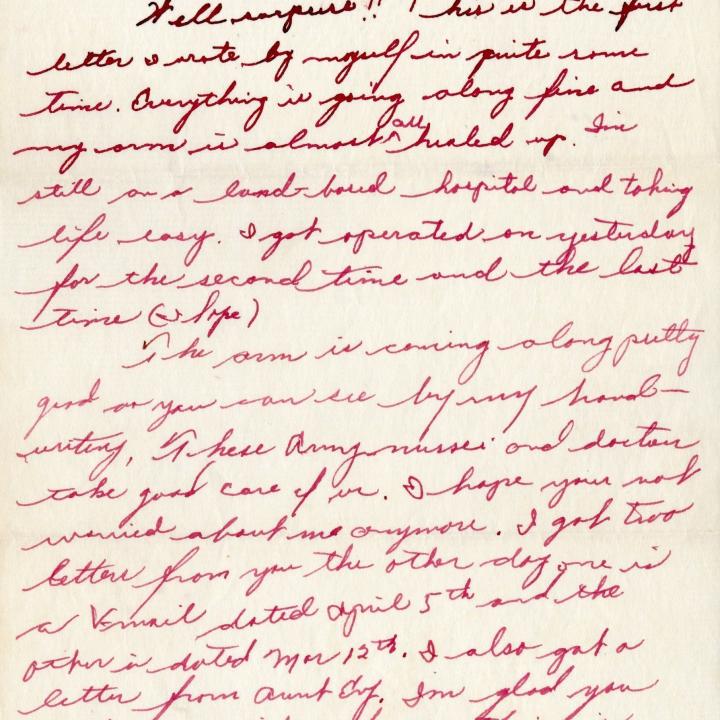 Well surprise!! This is the first
letter I wrote by myself in quite some
time. Everything is going along fine and
my arm is almost all healed up. Im
still on a land-based hospital and taking
life easy. I got operated on yesterday
for the second time and the last
time (I hope)
The arm is coming along pretty
good as you can see by my hand-
writing, These Army nurses and doctors
take good care of us. I hope your not
worried about me anymore. I got two
letters from you the other day, one is
a V-mail dated April 5th and the
other is dated Mar 12th. I also got a
letter from Aunt Evy. Im glad you